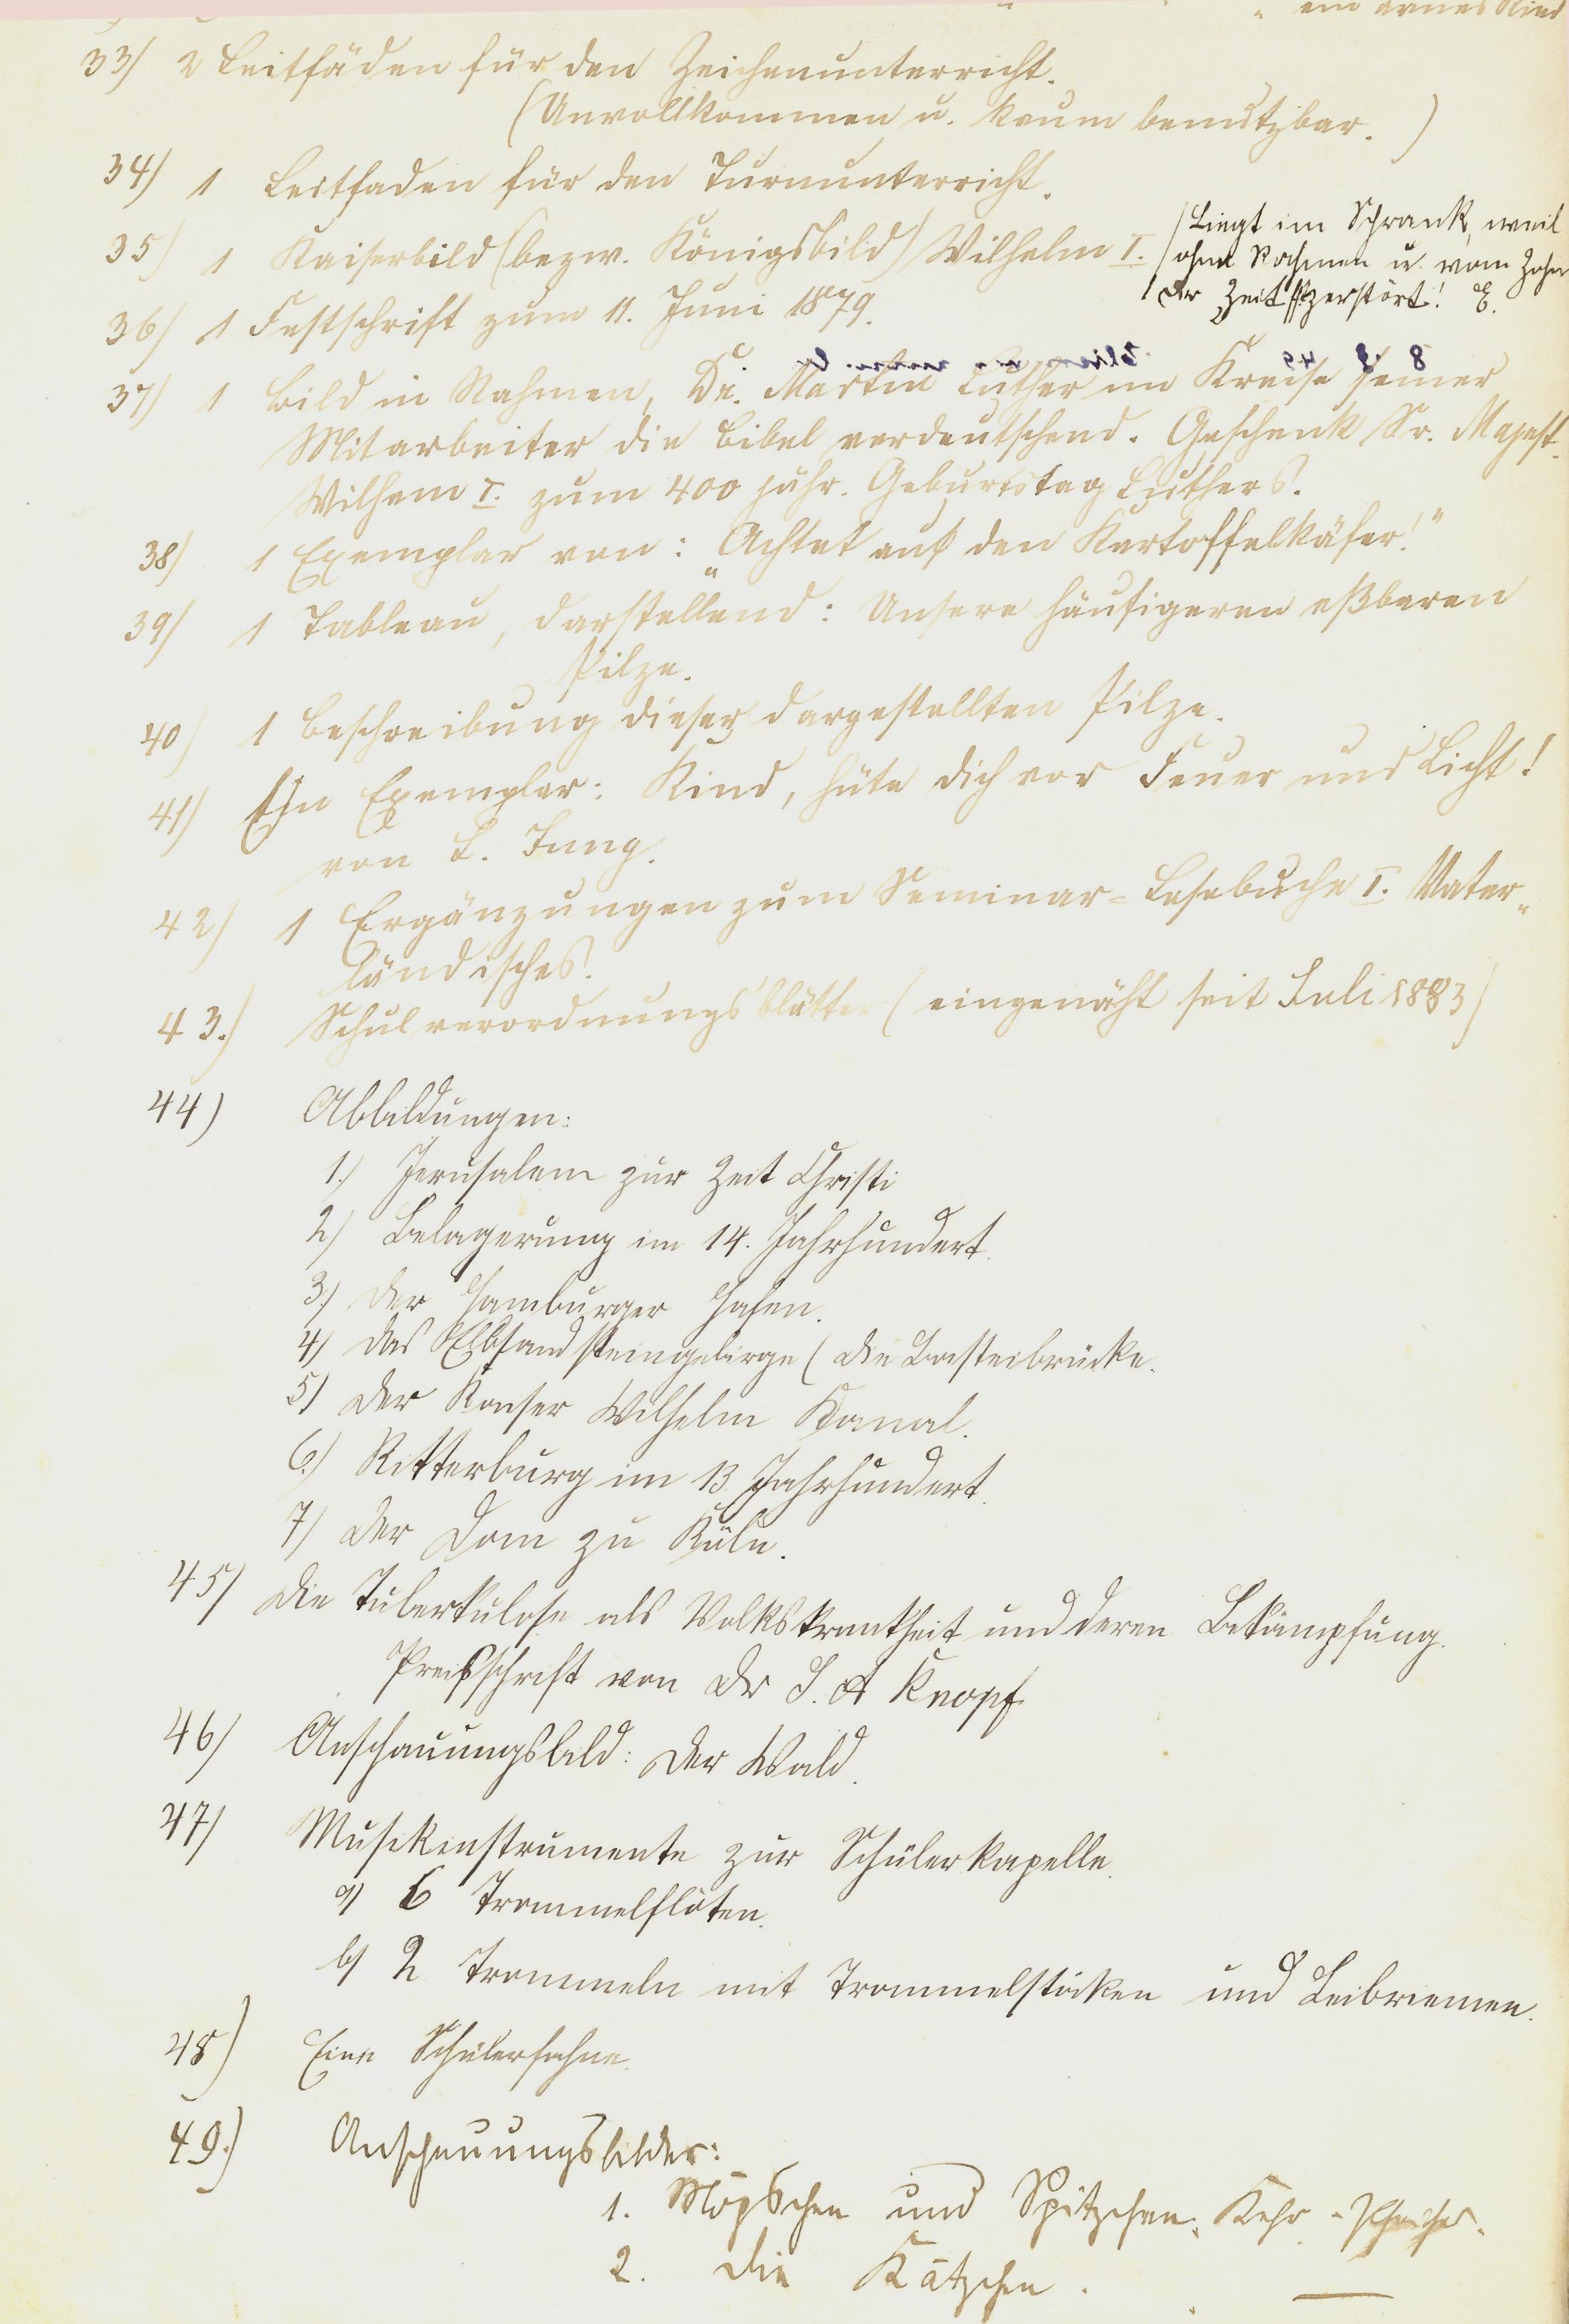 " " " ein armes Kind
33) 2 Leitfäden für den Zeichenunterricht.
(Unvollkommen u. kaum benutzbar.)
34) 1 Leitfaden für den Turnunterricht.
35) 1 Kaiserbild (bezw. Königsbild) Wilhelm I.
(Liegt im Schrank, weil
ohne Rahmen u. vom Zahn
der Zeit zerstört! E.
36) 1 Festschrift zum 11. Juni 1879.
37) 1 Bild in Rahmen, Dr. Martin Luther im Kreise seiner
Mitarbeiter die Bibel verdeutschend. Geschenk Sr. Majest.
Wilhem I. zum 400 jähr. Geburtstag Luthers.
38) 1 Exemplar von: „Achtet auf den Kartoffelkäfer!"
39) 1 Tableau, darstellend: Unsere häufigeren eßbaren
Pilze.
40) 1 Beschreibung dieser dargestellten Pilze.
41) Ein Exemplar: Kind, hüte dich vor Feuer und Licht!
von L. Jung.
42) 1 Ergänzungen zum Seminar=Lesebuche I. Vater„
ländisches.
43.) Schulverordnungsblätter (eingenäht seit Juli 1883)
44) Abbildungen:
1.) Jerusalem zur Zeit Christi
2) Belagerung im 14. Jahrhundert.
3.) Der Hamburger Hafen.
4) Das Elbsandsteingebirge (Die Basteibrücke.
5) Der Kaiser Wilhelm Kanal.
6.) Ritterburg im 13. Jahrhundert.
7) Der Dom zu Köln.
45) Die Tuberkulose als Volkskrankheit und deren Bekämpfung.
Preisschrift von Dr S. A Knopf
46) Anschauungsbild: Der Wald.
47) Musikinstrumente zur Schülerkapelle.
a) 6 Trommelflöten.
b) 2 Trommeln mit Trommelstöcken und Leibriemen.
48) Eine Schülerfahne.
49.) Anschauungsbilder:
1. Möpschen und Spitzchen. Kehr - Pfeiffer.
2. Die Kätzchen.